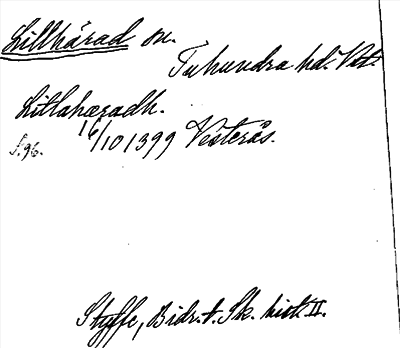 Lillhärad sn.
Tuhundra hd. Vstm.
Litlahæradh.
16/10 1399 Vesterås.
s. 96.
Styffe, Bidr. t. Sk. hist. II.